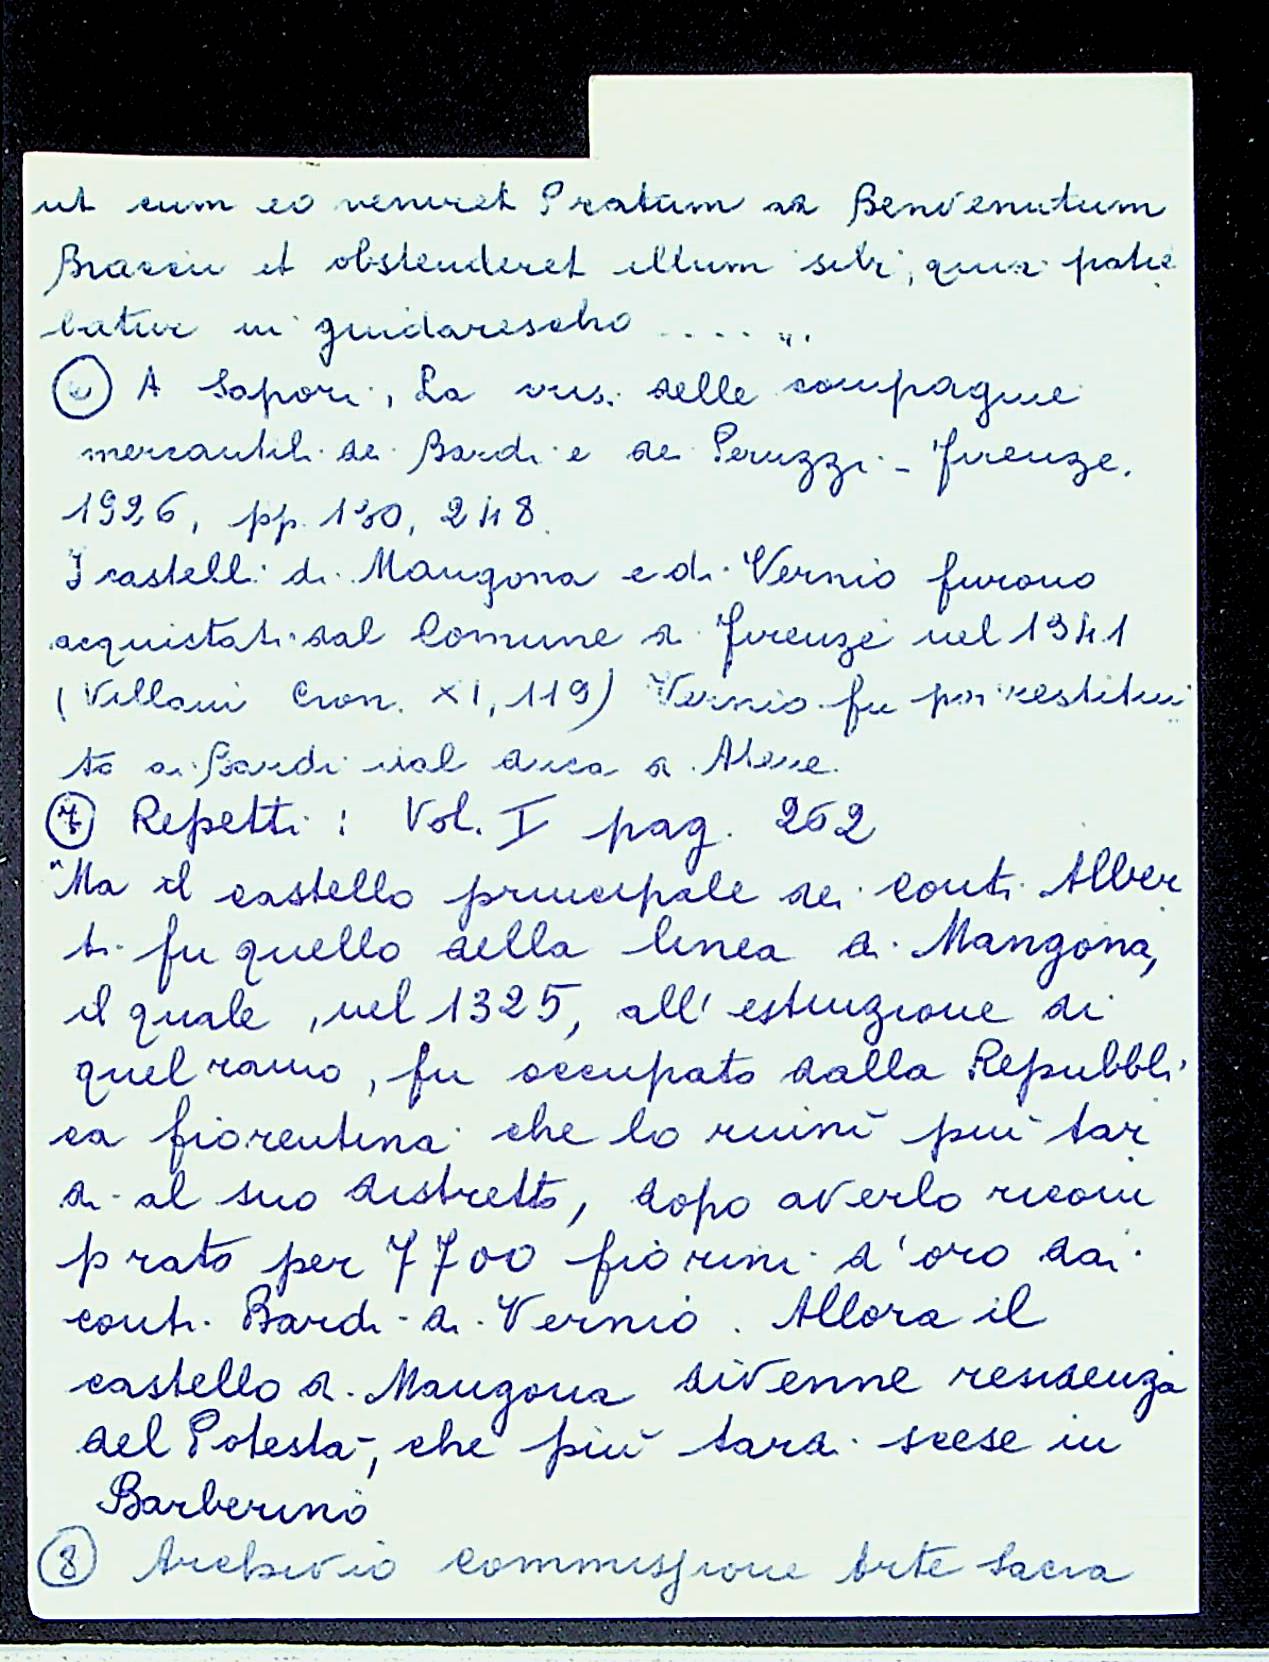 ut cum eo veniret Pratum ad Benvenutum
Braccii et obstenderet illum sibi, quia patie
batur in guidarescho . . . . ".
⑥ A Sapori, La cris. delle compagnie
mercantili dei Bardi e dei Peruzzi - Firenze.
1926, pp. 130, 248.
I castelli di Mangona e di Vernio furono
acquistati dal Comune di Firenze nel 1341
(Villani Cron. XI, 119) Vernio fu poi restitui
to ai Bardi dal duca di Atene.
⑦ Repetti: Vol. I pag. 262
"Ma il castello principale dei conti Alber
ti fu quello della linea di Mangona,
il quale, nel 1325, all'estinzione di
quel ramo, fu occupato dalla Repubbli
ca fiorentina che lo riunì più tar
di al suo distretto, dopo averlo ricom
prato per 7700 fiorini d'oro dai
conti Bardi di Vernio. Allora il
castello di Mangona divenne residenza
del Potestà, che più tardi scese in
Barberino
⑧ Archivio commissione Arte Sacra